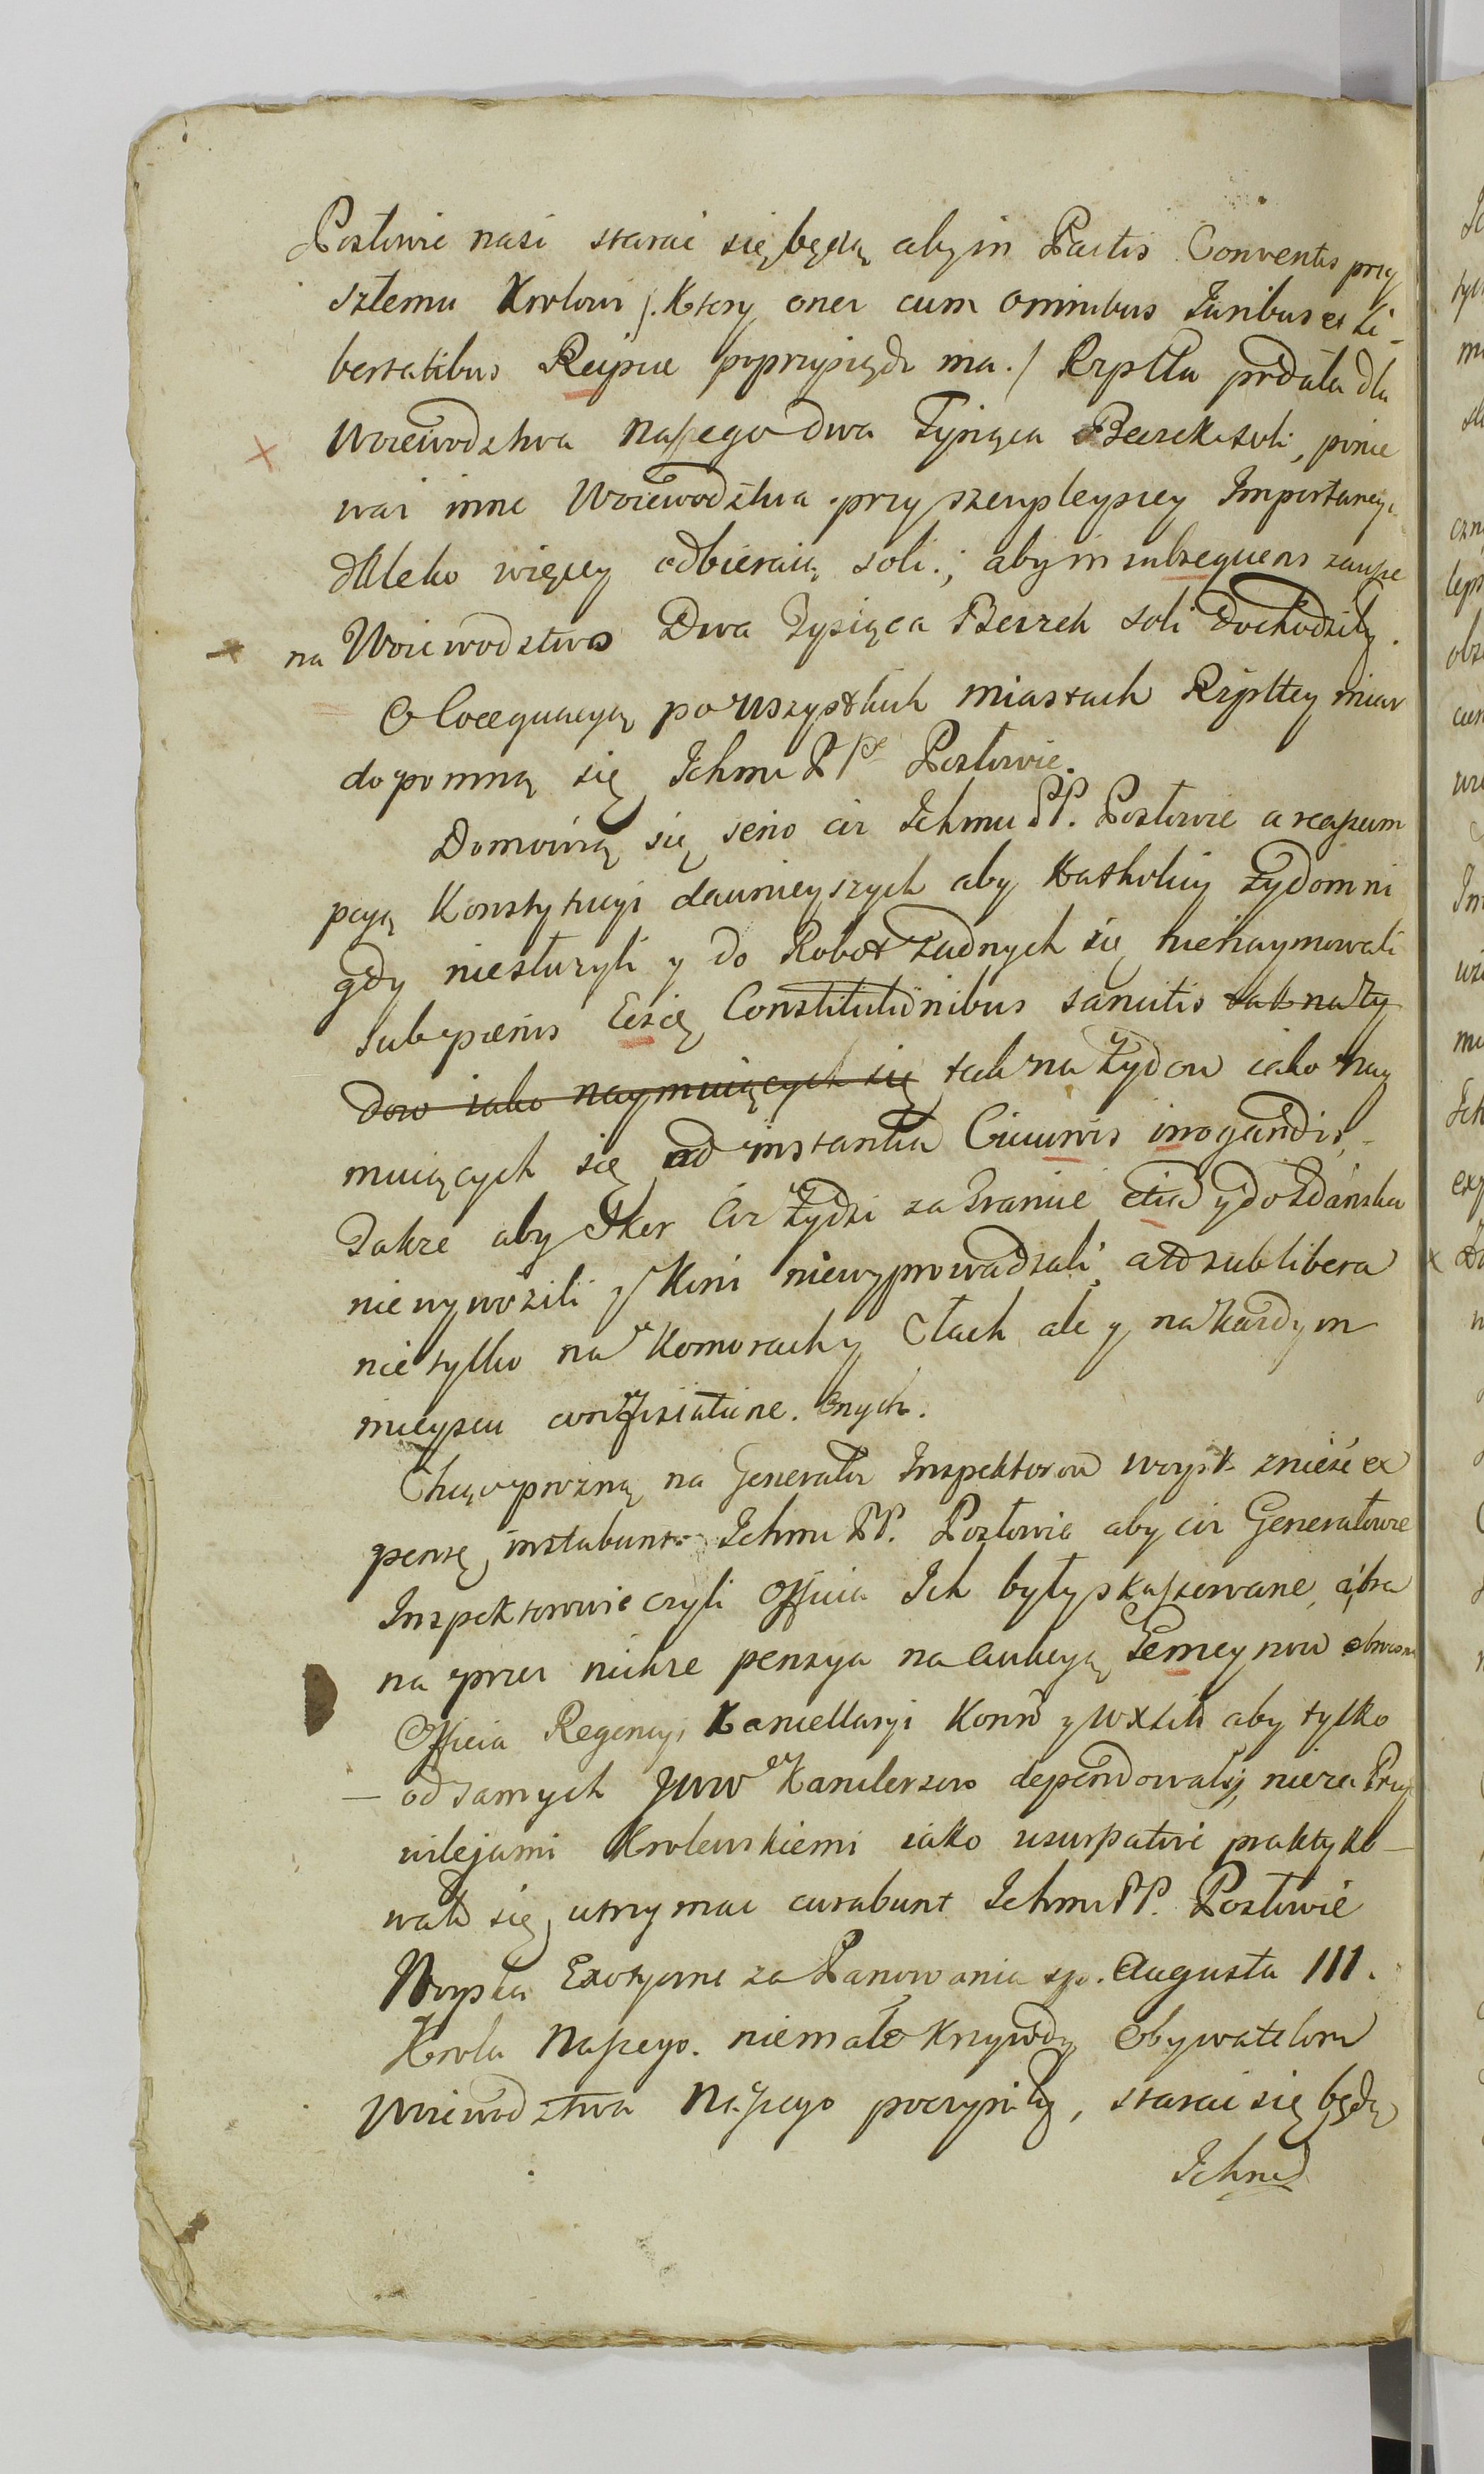 Posłowie nasi starać się będą aby in Pactis Conventis przy
szłemu Krolowi /. Ktory onez cum omnibus Iuribus et Li-
bertatibus Reipue poprzysiądz ma ./ Rzptta pođała dla
Woiewodztwa naszego dwa Tysiąca Beczek soli, ponie
waz inne Woiewodztwa przy szczupleyszey Importancyi
daleko więcey odbieraią soli.; aby in subsequens zawsze
na Woiewodztwo Dwa Tysiąca Beczek soli dochodziły.
O Coequacyą po wszystkich miastach Rzpltey miar
dopomną się Ichmc PP. Posłowie.
Domowią się serio ciz Ichmc PP. Posłowie a reassum
pcyą Konstytucyi dawnieyszych aby Katholicy Żydom ni
gdy niesłuzyli y do Robot żadnych się nienaymowali
sub pænis Eisce Constitutionibus sancitis tak na Ży
dow iako naymuiących się tak na Żydow iako nay
muiących się ad instantia Cicuivis irrogandis,
Takze aby Skor Ciz Żydzi za Granicę etia y do Gdańska
niewywozili y Koni niewyprowadzali, a to sub libera
nie tylko na Komorach y Cłach ale y na każdym
mieyscu confiscatione. onych.
Chcąc prozną na Generałow Inspektorow woysk znieść ex
pensę, instabunt Ichmc PP. Posłowie aby ciz Generałowie
Inspektorowie czyli officia Ich były skassowane, a bra
na przez nichze pensya na aukcyą Gemeynow obrocona
Officia Regencyi Kancellaryi Konn y WXLitt aby tylko
od samych JWW Kanclerzow dependowały, nieza Przy
wilejami Krolewskiemi iako usurpative praktyko-
wało się, utrzymać curabunt Ichmc PP. Posłowie
Woyska Exotyczne za Panowania sp. Augusta III.
Krola Naszego. niemałe Krzywdy Obywatelom
Woiewodztwa Naszego poczyniły, starać się będą
Ichmc